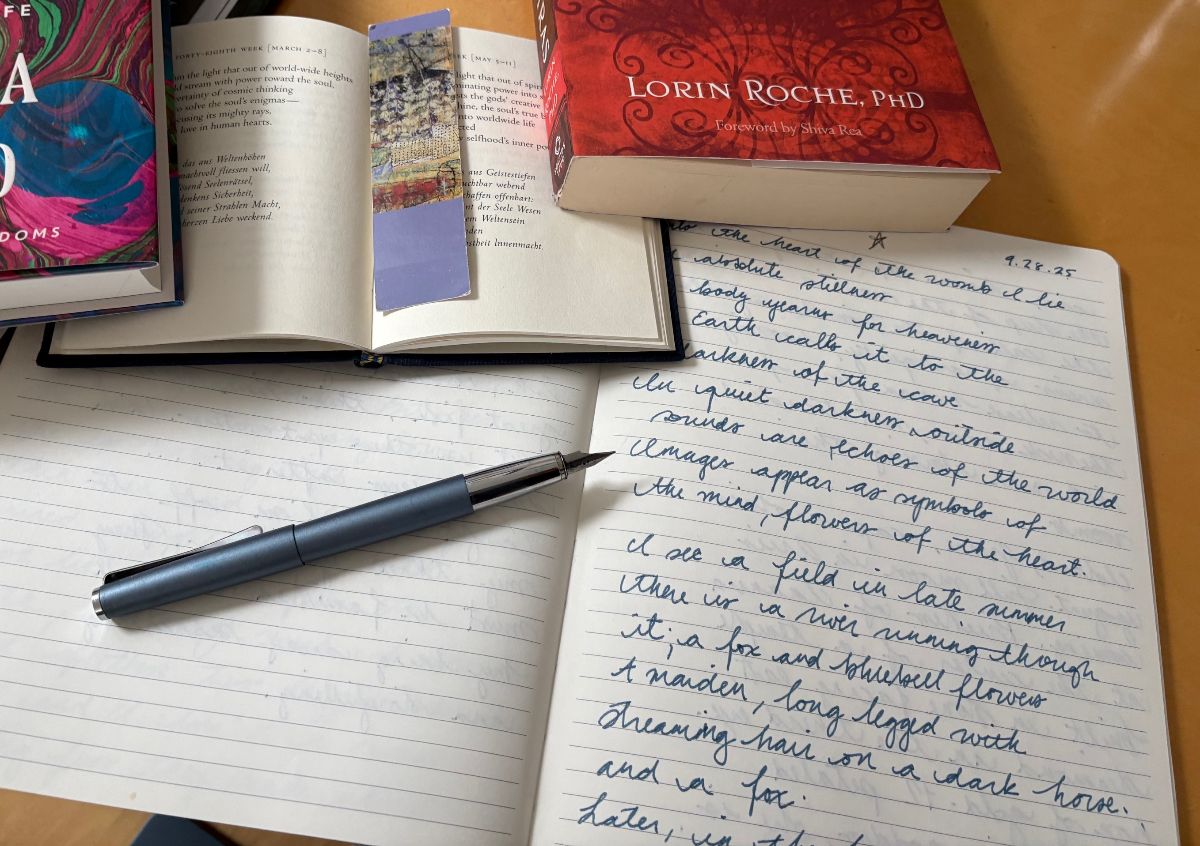 FE
A
O
DOMS
FORTY-EIGHTH WEEK [MARCH 2–8]
in the light that out of world-wide heights
d stream with power toward the soul,
ertainty of cosmic thinking
o solve the soul's enigmas—
cusing its mighty rays,
love in human hearts.
das aus Weltenhöhen
machtvoll fliessen will,
send Seelenrätsel,
denkens Sicherheit,
d seiner Strahlen Macht,
herzen Liebe weckend.
EEK [MAY 5–11]
light that out of spir
minating power into s
sts the gods' creative
hine, the soul's true b
nto worldwide life
cted
selfhood's inner po
s aus Geistestiefen
uchtbar webend
chaffen offenbart:
nt der Seele Wesen
em Weltensein
nden
bstheit Innenmacht.
LORIN ROCHE, PHD
Foreword by Shiva Rea
9.28.25
into the heart of the womb I lie
absolute stillness
body yearns for heaviness
Earth calls it to the
darkness of the cave
In quiet darkness, outside
sounds are echoes of the world
Images appear as symbols of
the mind, flowers of the heart.
I see a field in late summer
there is a river running though
it; a fox and bluebell flowers
A maiden, long legged with
streaming hair on a dark horse.
and a fox.
Later, in the